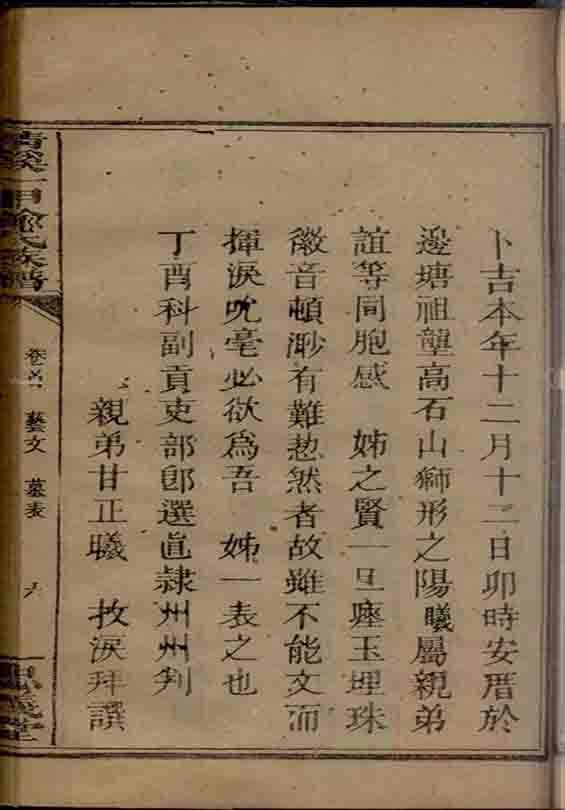 卜吉本年十二月十二日卯時安厝於
邊塘祖壟高石山獅形之陽曦屬親弟
誼等同胞感　姊之賢一旦瘞玉埋珠
徽音頓渺有難恝然者故雖不能文而
揮淚吮毫必欲爲吾　姊一表之也
丁酉科副貢吏部郎選直隸州州判
親弟甘正曦　抆淚拜譔
清溪一甲 氏族譜
卷首　藝文　墓表
堂